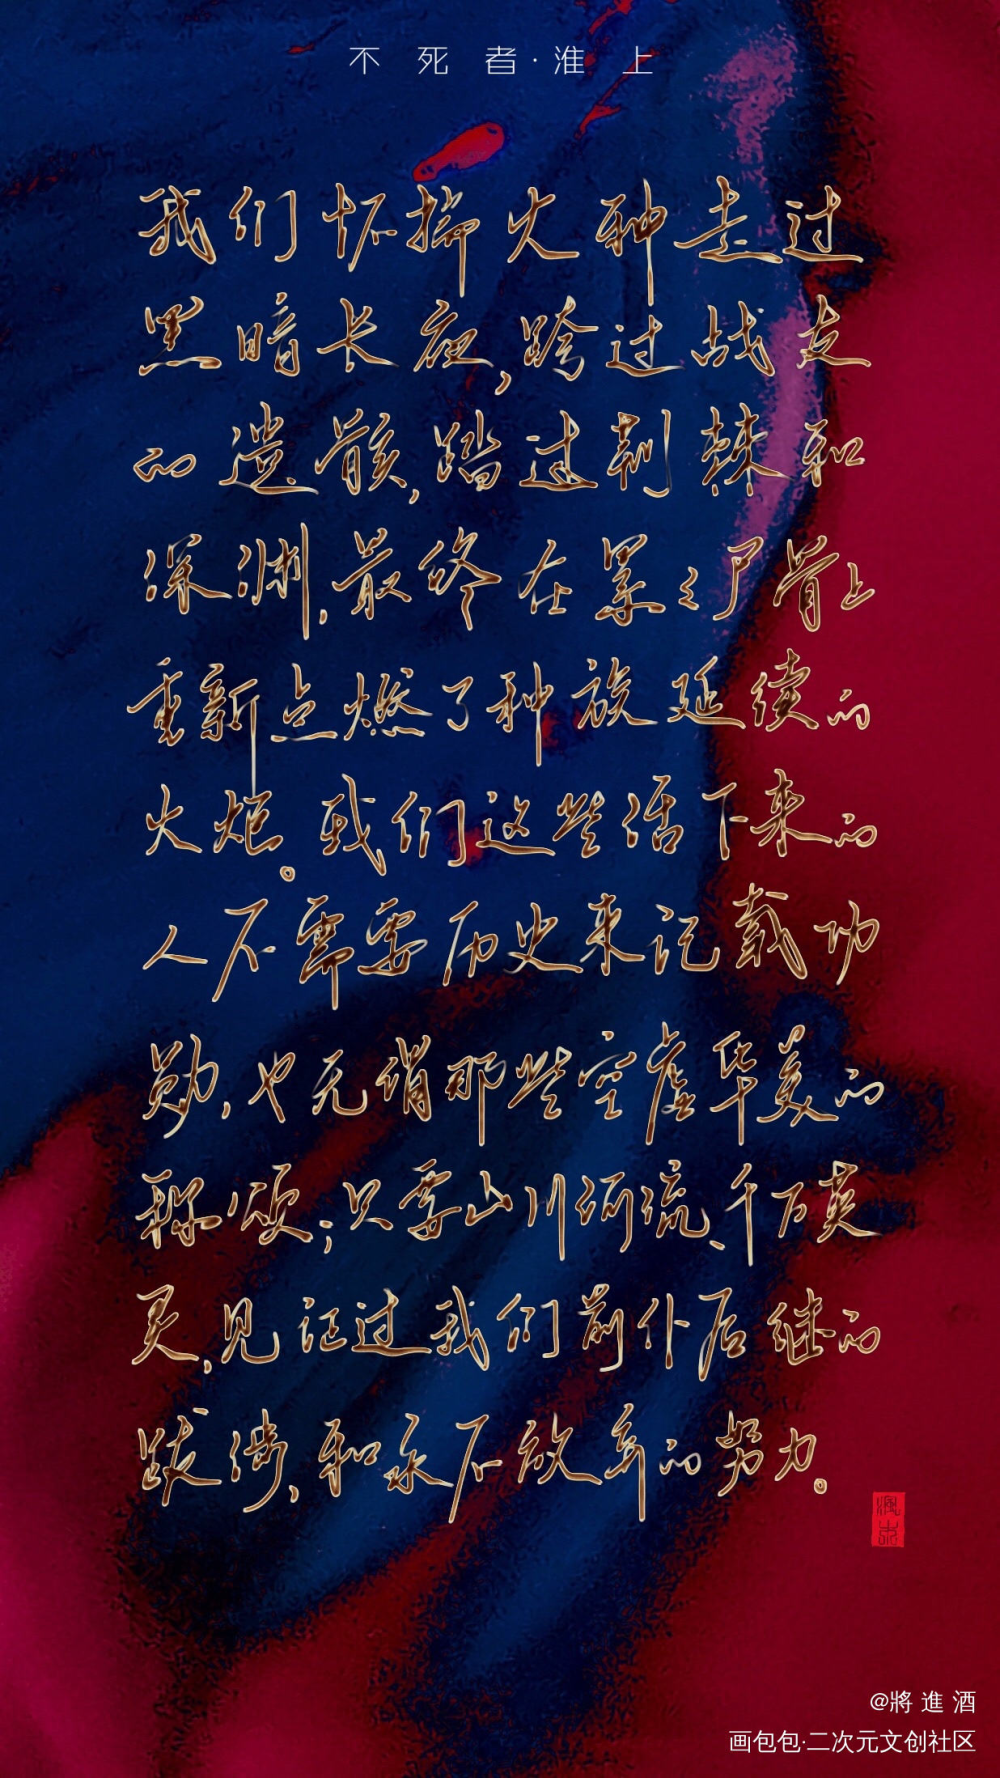 不死者·淮上
我们怀揣火种走过
黑暗长夜,跨过战友
的遗骸,踏过荆棘和
深渊,最终在累々尸骨上
重新点燃了种族延续的
火炬。我们这些活下来的
人不需要历史来记载功
勋,也无谓那些空虚华美的
称颂;只要山川河流、千万英
灵,见证过我们前仆后继的
跋涉、和永不放弃的努力。
@將進酒
画包包·二次元文创社区